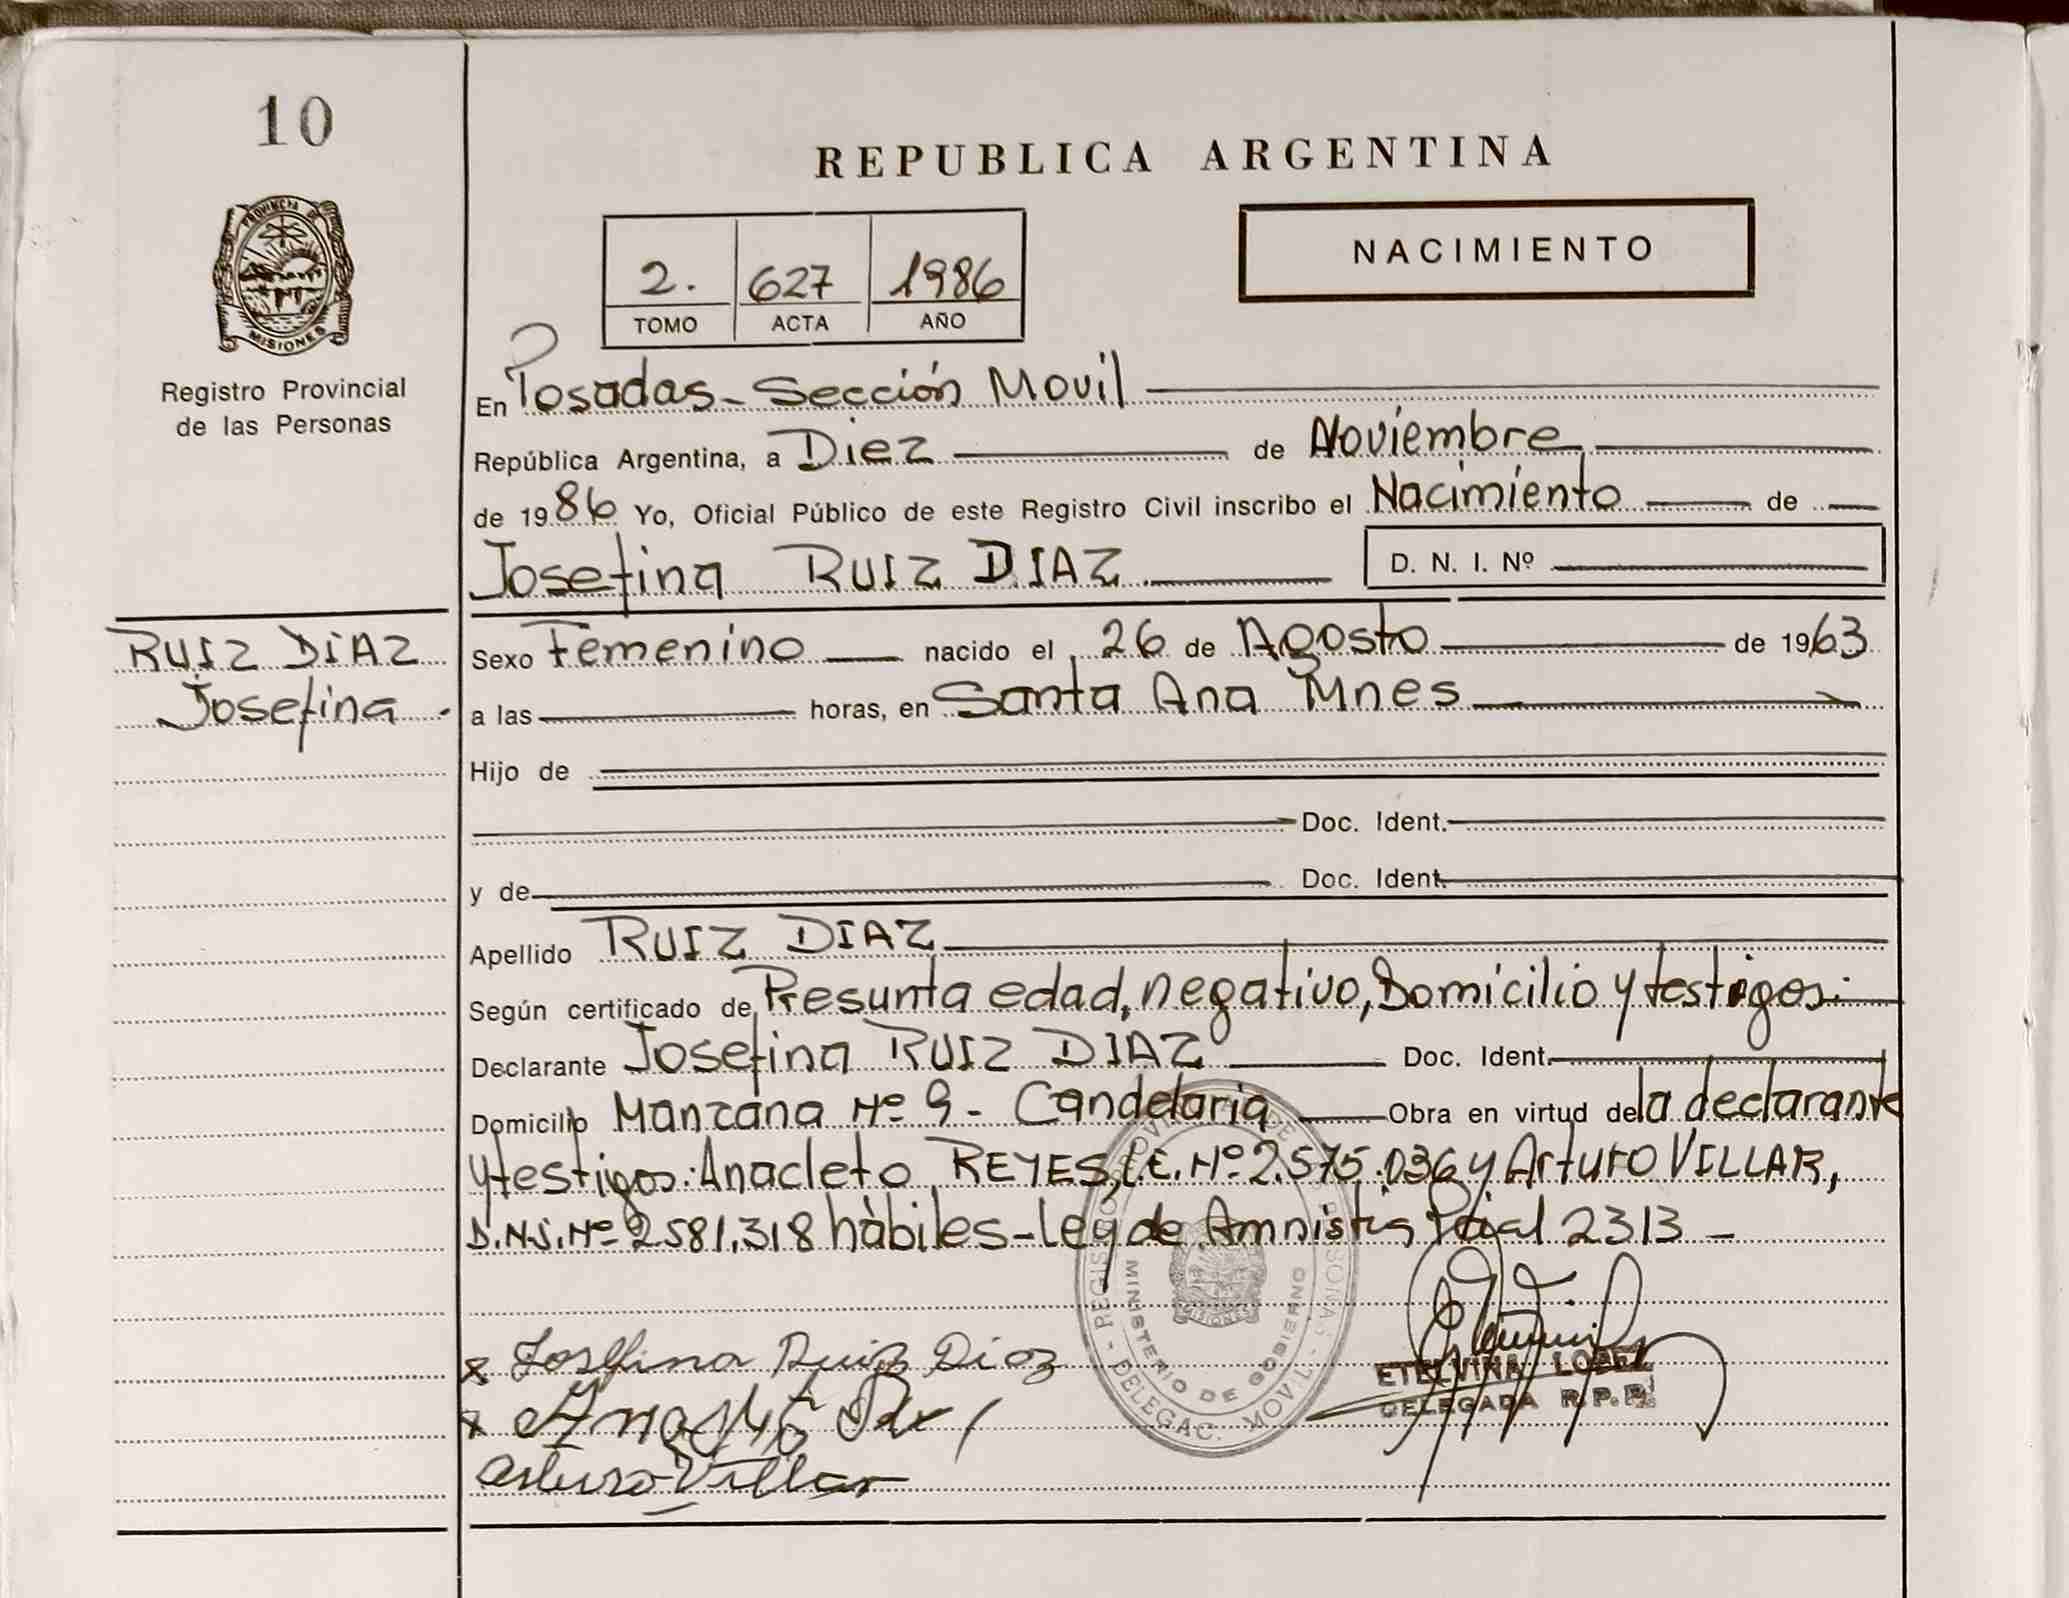 10
REPUBLICA ARGENTINA
PROVINCIA DE
MISIONES
Registro Provincial
de las Personas
2. 627 1986
TOMO ACTA AÑO
NACIMIENTO
En Posadas - Sección Movil
República Argentina, a Diez de Noviembre
de 1986 Yo, Oficial Público de este Registro Civil inscribo el Nacimiento de
Josefina RUIZ DIAZ D. N. I. Nº
RUIZ DIAZ
Josefina.
Sexo Femenino nacido el 26 de Agosto de 1963
a las horas, en Santa Ana Mnes
Hijo de
Doc. Ident.
y de Doc. Ident.
Apellido RUIZ DIAZ
Según certificado de Presunta edad, negativo, Domicilio y testigos.
Declarante Josefina RUIZ DIAZ Doc. Ident.
Domicilio Manzana Nº 9 - Candelaria Obra en virtud de la declarante
y testigos: Anacleto REYES, L.E. Nº 2.575.036 y Arturo VILLAR,
D.N.I. Nº 2.581.318 hàbiles - Ley de Amnistia Pcial 2313 -
x Josefina Ruiz Diaz
x
Arturo Villar
MINISTERIO DE GOBIERNO
DELEGAC. MOVIL
MISIONES
ETELVINA LOPEZ
DELEGADA R.P.P.